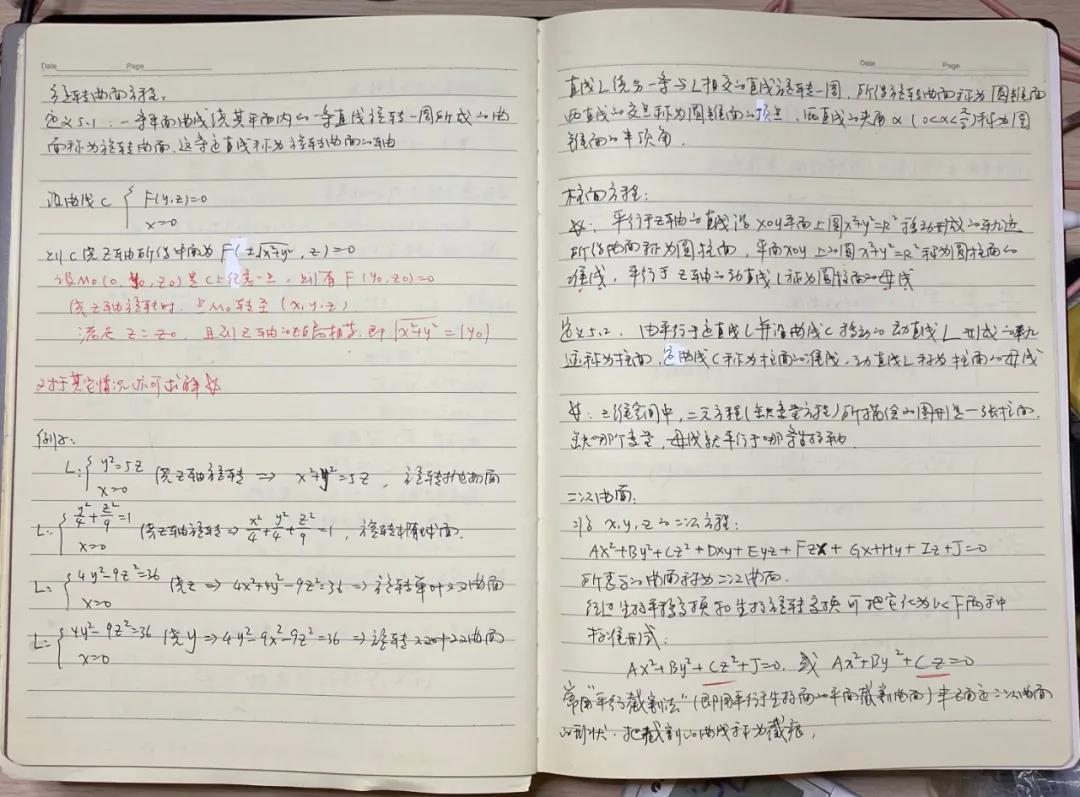 Date Page
旋转曲面方程。
定义5.1:一条平面曲线绕其平面内的一条直线旋转一周所成的曲
面称为旋转曲面,这条定直线称为旋转曲面的轴
设曲线C { F(y,z)=0
x=0
则C绕Z轴所得曲面为 F(±√x²+y², z)=0
设M₀(0, y₀, z₀)是C上任意一点,则有 F(y₀,z₀)=0
绕Z轴旋转时,点M₀转至(x,y,z)
满足 z=z₀,且到Z轴的距离相等,即√x²+y²=|y₀|
对于其它情况亦可求解
例子:
L:{ y²=5z
x=0
绕Z轴旋转 ⇒ x²+y²=5z,旋转抛物面
L:{ y²/4+z²/9=1
x=0
绕Z轴旋转⇒ x²/4+y²/4+z²/9=1,旋转椭球面.
L:{ 4y²-9z²=36
x=0
绕z ⇒ 4x²+4y²-9z²=36 ⇒ 旋转单叶双曲面
L:{ 4y²-9z²=36
x=0
绕y ⇒ 4y²-9x²-9z²=36 ⇒ 旋转双叶双曲面
Date Page
直线L绕另一条与L相交的直线旋转一周,所得旋转曲面称为圆锥面
两直线的交点称为圆锥面的顶点,两直线的夹角α(0<α<π/2)称为圆
锥面的半顶角.
柱面方程:
平行于Z轴的直线沿xoy平面上圆x²+y²=R²移动形成的轨迹
所得曲面称为圆柱面,平面xoy上的圆x²+y²=R²称为圆柱面的
准线,平行于Z轴的动直线l称为圆柱面的母线
定义5.2. 由平行于定直线L并沿曲线C移动的动直线L形成的轨
迹称为柱面,定曲线C称为柱面的准线,动直线L称为柱面的母线
三维空间中,二元方程(缺变量方程)所描绘的图形是一张柱面,
缺哪个变量,母线就平行于哪条坐标轴.
二次曲面.
x,y,z的二次方程:
Ax²+By²+Cz²+Dxy+Eyz+Fzx+Gx+Hy+Iz+J=0
所表示的曲面称为二次曲面.
经过坐标平移变换和坐标旋转变换可把它化为以下两种
标准形式:
Ax²+By²+Cz²+J=0, 或 Ax²+By²+Cz=0
常用“平行截割法”(即用平行于坐标面的平面截割曲面)来确定二次曲面
的形状.把截割的曲线称为截痕,